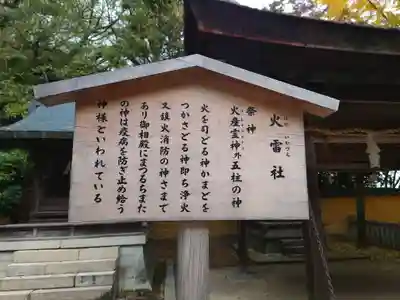 火雷社
祭神
火産霊神外五柱の神
火を司どる神かまどを
つかさどる神即ち浄火
又鎮火消防の神さまで
あり御相殿にまつるちまた
の神は疫病を防ぎ止め給う
神様といわれている